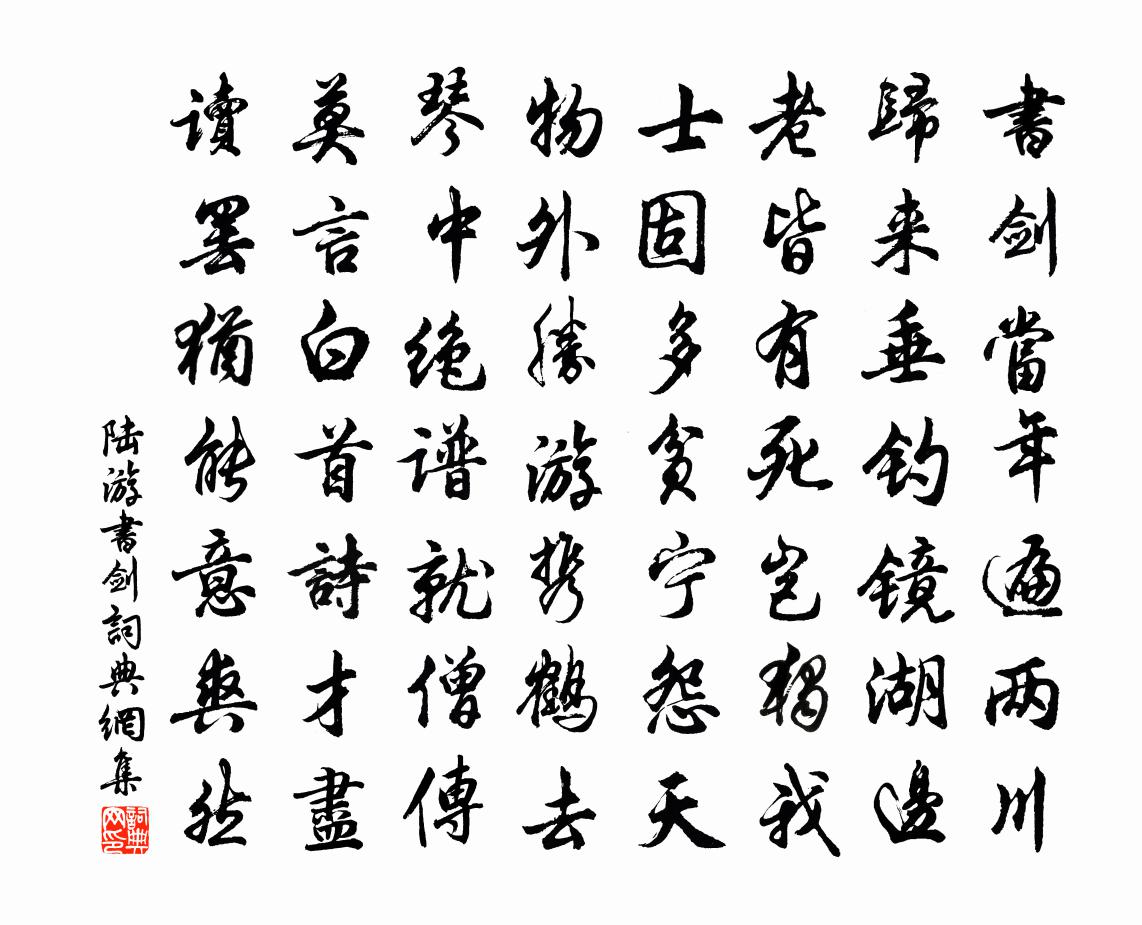 書剑當年遍两川
歸来垂钓镜湖邊
老皆有死岂獨我
士固多贫宁怨天
物外勝游携鹤去
琴中绝谱就僧傳
莫言白首詩才盡
读罢猶能意爽然
陆游書剑詞典網集
詞典网印